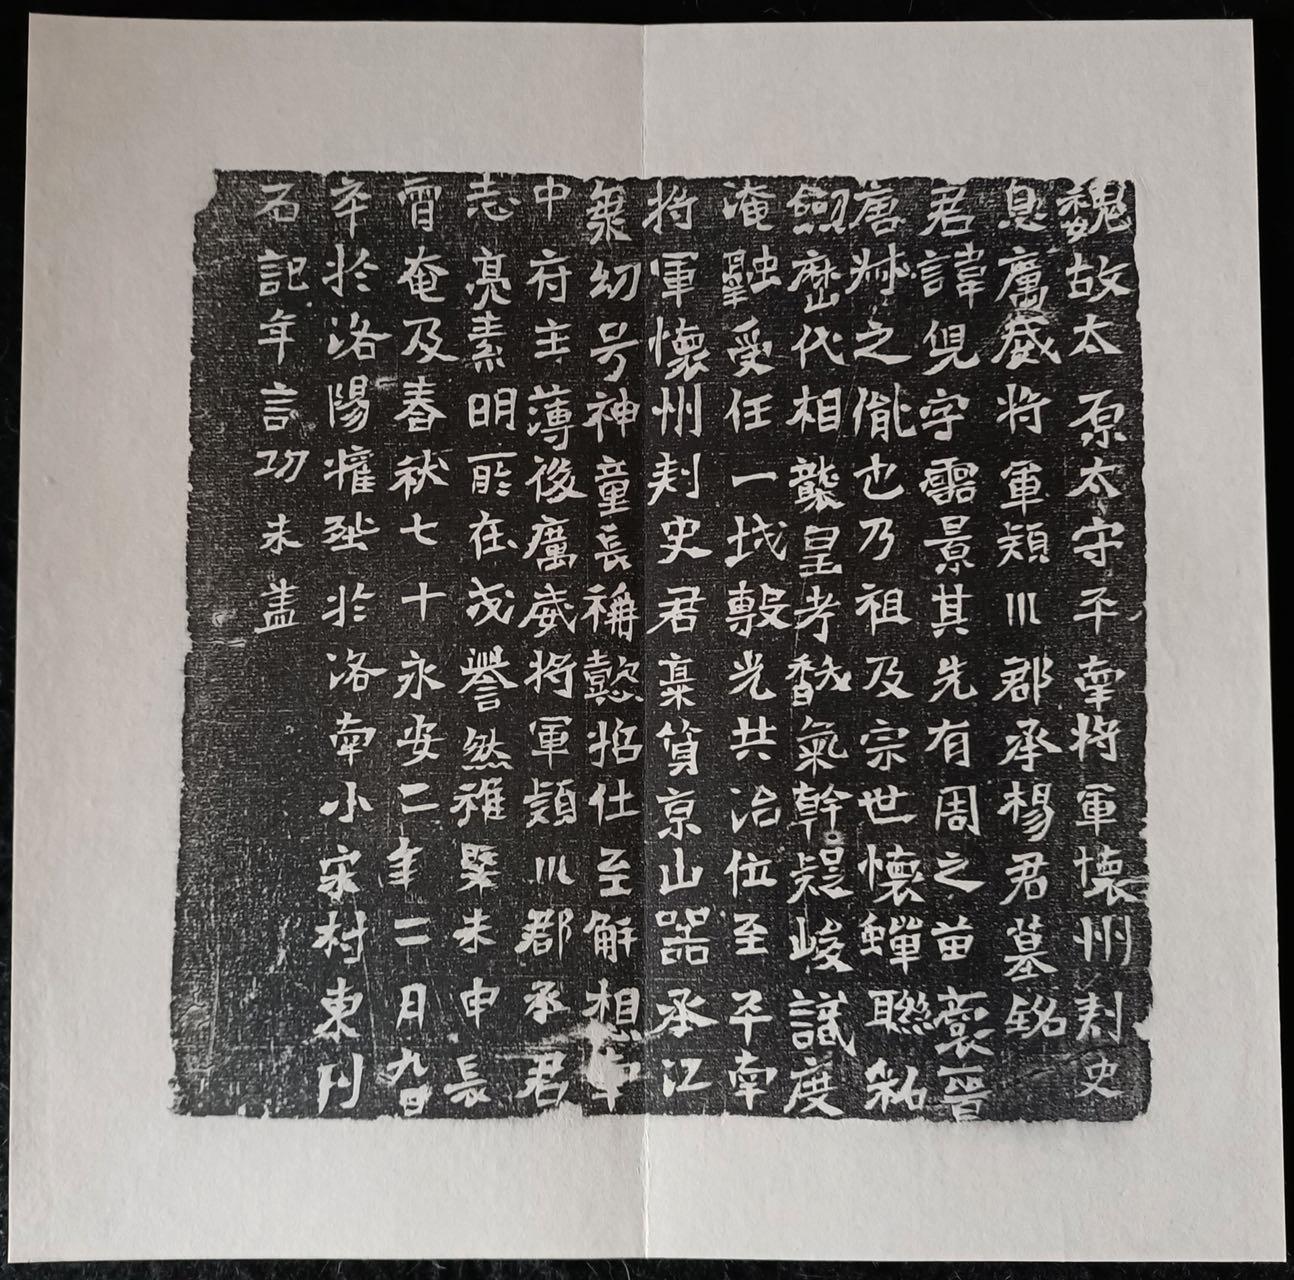 魏故太原太守平南将軍懷州刾史
息厲威将軍潁川郡承楊君墓銘
君諱倪字霛景其先有周之苗裔晉
唐林之胤也乃祖及宗世懷蟬聯紹
劔歷代相襲皇考馥氣幹凝峻識度
淹融受任一城敷光共治位至平南
将軍懷州刾史君稟質京山器承江
幼号神童長稱懿招仕至解褐
中府主薄後厲威将軍潁川郡承君
志亮素明所在戎譽然雅未申長
霄奄及春秋七十永安二年二月九日
卒於洛陽權於洛南小宋村東刊
石記年言功未盖